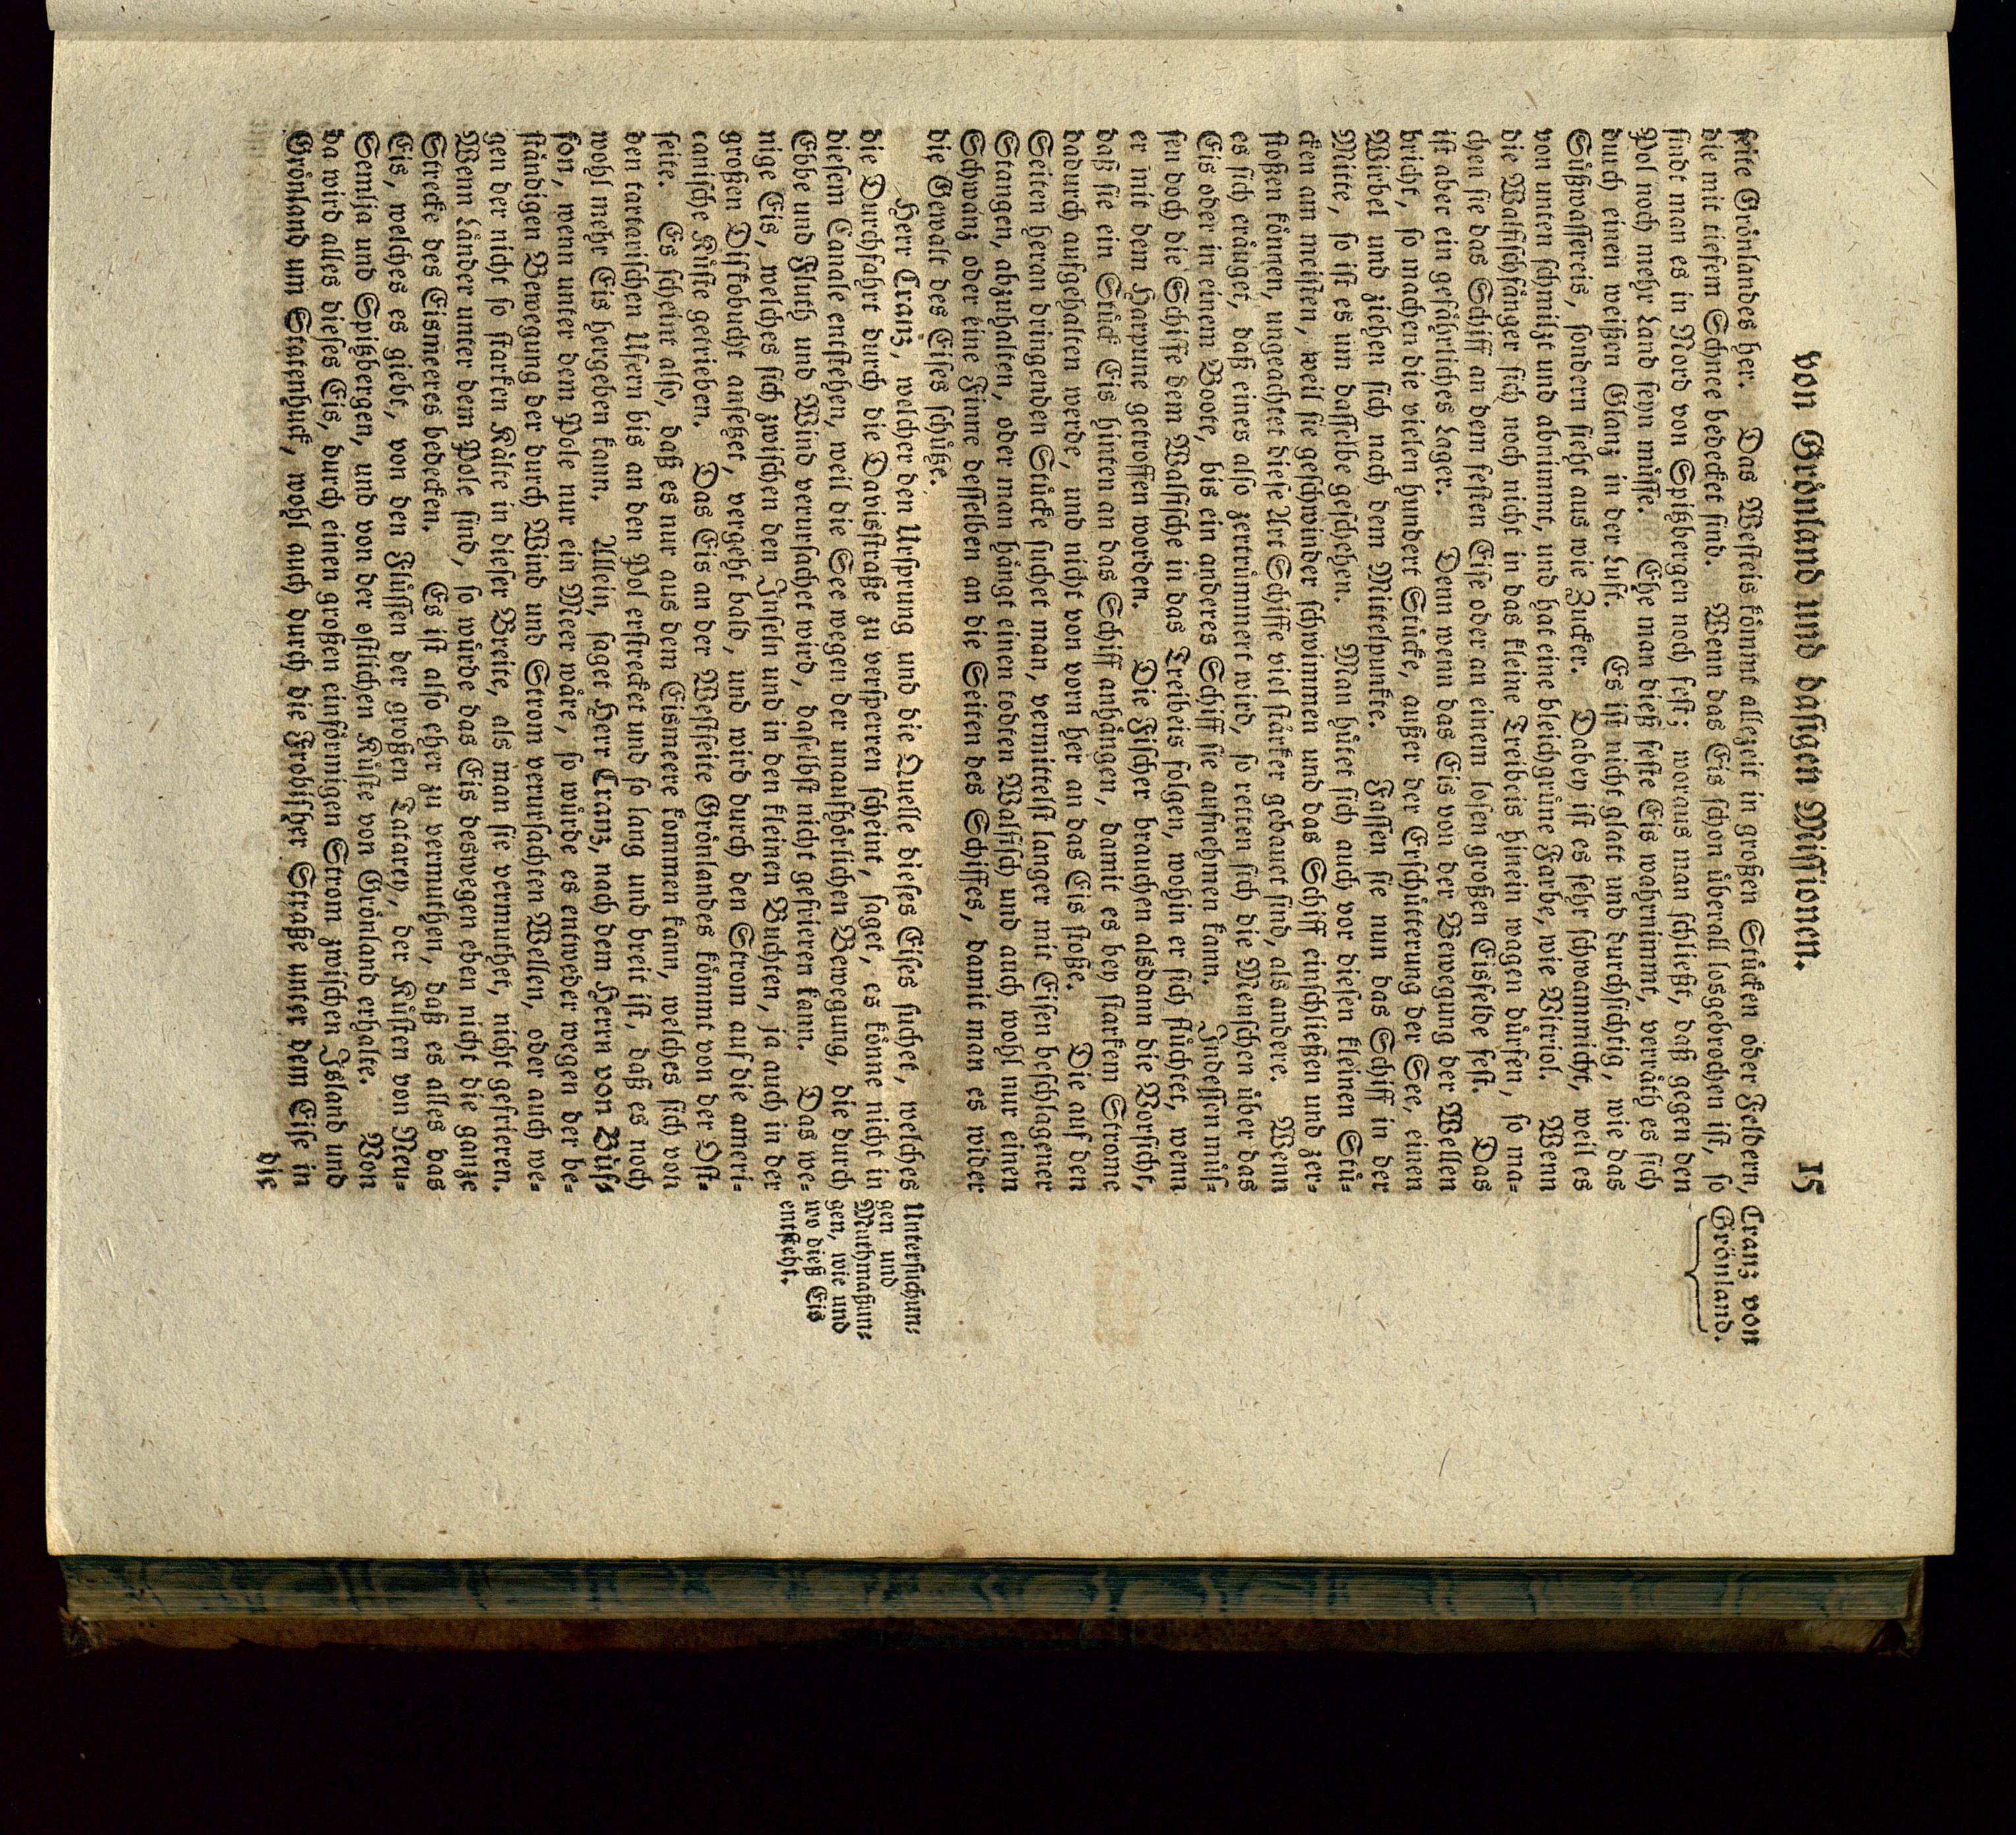 von Grönland und dasigen Missionen. 15
seite Grönlandes her. Das Westeis kömmt allezeit in großen Stücken oder Feldern,
die mit tiefem Schnee bedecket sind. Wenn das Eis schon überall losgebrochen ist, so
findt man es in Nord von Spitzbergen noch fest; woraus man schließt, daß gegen den
Pol noch mehr Land seyn müsse. Ehe man dieß feste Eis wahrnimmt, verräth es sich
durch einen weißen Glanz in der Luft. Es ist nicht glatt und durchsichtig, wie das
Süßwassereis, sondern sieht aus wie Zucker. Dabey ist es sehr schwammicht, weil es
von unten schmilzt und abnimmt, und hat eine bleichgrüne Farbe, wie Vitriol. Wenn
die Wallfischfänger sich noch nicht in das kleine Treibeis hinein wagen dürfen, so ma-
chen sie das Schiff an dem festen Eise oder an einem losen großen Eisfelde fest. Das
ist aber ein gefährliches Lager. Denn wenn das Eis von der Bewegung der Wellen
bricht, so machen die vielen hundert Stücke, außer der Erschütterung der See, einen
Wirbel und ziehen sich nach dem Mittelpunkte. Fassen sie nun das Schiff in der
Mitte, so ist es um dasselbe geschehen. Man hütet sich auch vor diesen kleinen Stü-
cken am meisten, weil sie geschwinder schwimmen und das Schiff einschließen und zer-
stoßen können, ungeachtet diese Art Schiffe viel stärker gebauet sind, als andere. Wenn
es sich eräuget, daß eines also zertrümmert wird, so retten sich die Menschen über das
Eis oder in einem Boote, bis ein anderes Schiff sie aufnehmen kann. Indessen müs-
sen doch die Schiffe dem Walfische in das Treibeis folgen, wohin er sich flüchtet, wenn
er mit dem Harpune getroffen worden. Die Fischer brauchen alsdann die Vorsicht,
daß sie ein Stück Eis hinten an das Schiff anhängen, damit es bey starkem Strome
dadurch aufgehalten werde, und nicht von vorn her an das Eis stoße. Die auf den
Seiten heran dringenden Stücke suchet man, vermittelst langer mit Eisen beschlagener
Stangen, abzuhalten, oder man hängt einen todten Walfisch und auch wohl nur einen
Schwanz oder eine Finne desselben an die Seiten des Schiffes, damit man es wider
die Gewalt des Eises schütze.
Herr Cranz, welcher den Ursprung und die Quelle dieses Eises suchet, welches
die Durchfahrt durch die Davisstraße zu versperren scheint, saget, es könne nicht in
diesem Canale entstehen, weil die See wegen der unaufhörlichen Bewegung, die durch
Ebbe und Fluth und Wind verursachet wird, daselbst nicht gefrieren kann. Das we-
nige Eis, welches sich zwischen den Inseln und in den kleinen Buchten, ja auch in der
großen Diskobucht ansetzet, vergeht bald, und wird durch den Strom auf die ameri-
canische Küste getrieben. Das Eis an der Westseite Grönlandes kömmt von der Ost-
seite. Es scheint also, daß es nur aus dem Eismeere kommen kann, welches sich von
den tartarischen Ufern bis an den Pol erstrecket und so lang und breit ist, daß es noch
wohl mehr Eis hergeben kann. Allein, saget Herr Cranz, nach dem Herrn von Büf-
fon, wenn unter dem Pole nur ein Meer wäre, so würde es entweder wegen der be-
ständigen Bewegung der durch Wind und Strom verursachten Wellen, oder auch we-
gen der nicht so starken Kälte in dieser Breite, als man sie vermuthet, nicht gefrieren.
Wenn Länder unter dem Pole sind, so würde das Eis deswegen eben nicht die ganze
Strecke des Eismeeres bedecken. Es ist also eher zu vermuthen, daß es alles das
Eis, welches es giebt, von den Flüssen der großen Tatarey, der Küsten von Neu-
Semlja und Spitzbergen, und von der östlichen Küste von Grönland erhalte. Von
da wird alles dieses Eis, durch einen großen einförmigen Strom zwischen Island und
Grönland um Statenhuk, wohl auch durch die Frobisher Straße unter dem Eise in
die
Cranz von
Grönland.
Untersuchun-
gen und
Muthmaßun-
gen, wie und
wo dieß Eis
entsteht.